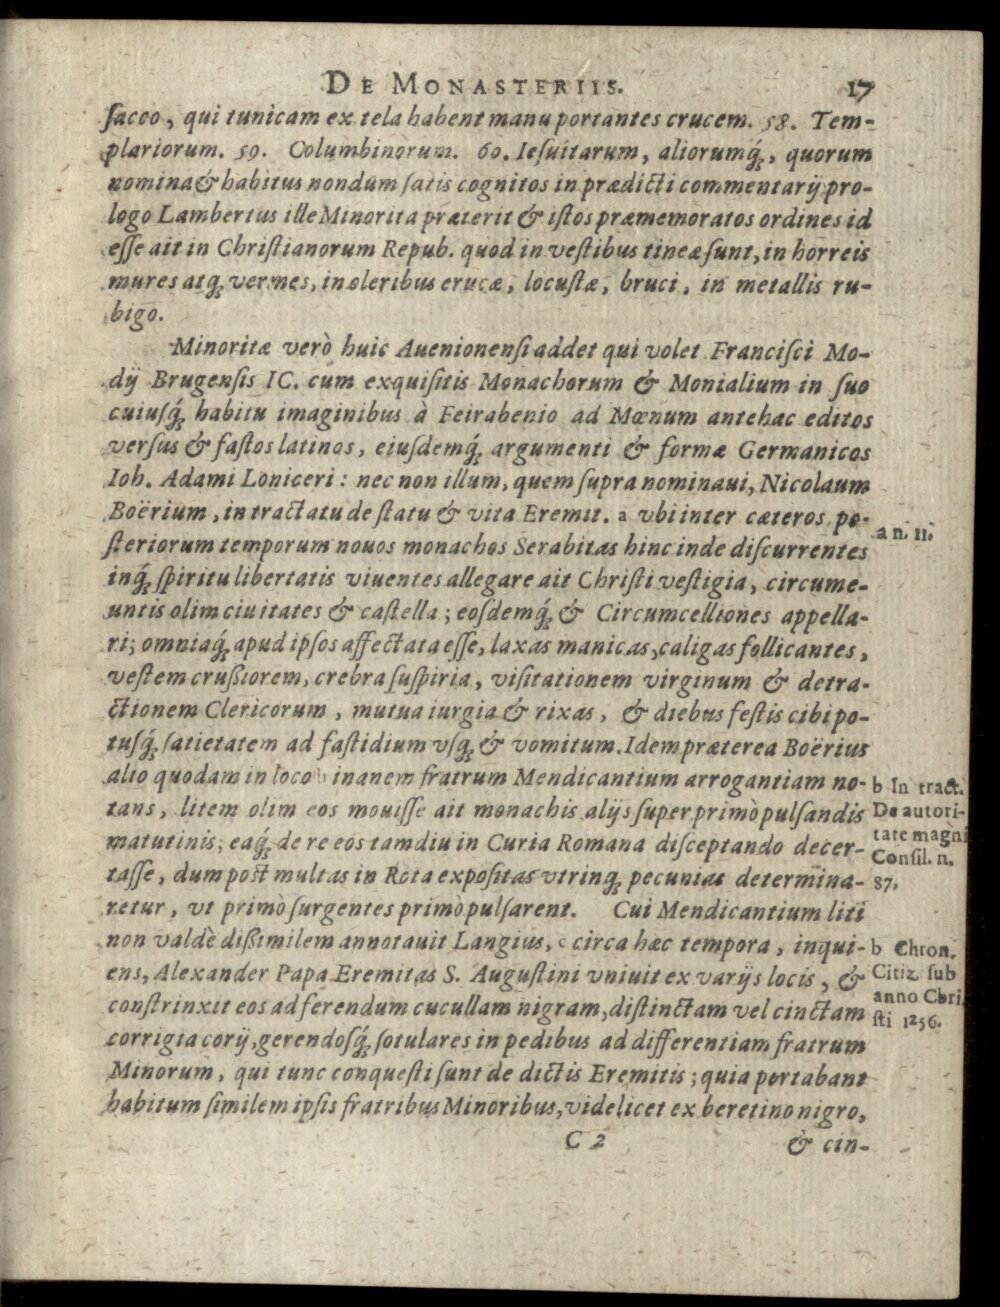 DE MONASTERIIS. 17
ſacco, qui tunicam ex tela habent manu portantes crucem. 58. Tem-
plariorum. 59. Columbinorum. 60. Ieſuitarum, aliorumq́;, quorum
nomina & habitus nondum ſatis cognitos in prædicti commentarij pro-
logo Lambertus ille Minorita præterit & iſtos præmemoratos ordines id
eſſe ait in Chriſtianorum Repub. quod in veſtibus tineæ ſunt, in horreis
mures atq; vermes, in oleribus erucæ, locuſtæ, bruci, in metallis ru-
bigo.
Minoritæ verò huic Auenionenſi addet qui volet Franciſci Mo-
dij Brugenſis IC. cum exquiſitis Monachorum & Monialium in ſuo
cuiuſq́; habitu imaginibus à Feirabenio ad Mœnum antehac editos
verſus & faſtos latinos, eiuſdemq́; argumenti & formæ Germanicos
Ioh. Adami Loniceri: nec non illum, quem ſupra nominaui, Nicolaum
Boërium, in tractatu de ſtatu & vita Eremit. a vbi inter cæteros po-
ſteriorum temporum nouos monachos Serabitas hinc inde diſcurrentes
inq́; ſpiritu libertatis viuentes allegare ait Chriſti veſtigia, circume-
untis olim ciuitates & caſtella; eoſdemq́; & Circumcelliones appella-
ri; omniaq́; apud ipſos affectata eſſe, laxas manicas, caligas follicantes,
veſtem craſſiorem, crebra ſuſpiria, viſitationem virginum & detra-
ctionem Clericorum, mutua iurgia & rixas, & diebus feſtis cibi po-
tuſq́; ſatietatem ad faſtidium vſq; & vomitum. Idem præterea Boërius
alio quodam in loco b inanem fratrum Mendicantium arrogantiam no-
tans, litem olim eos mouiſſe ait monachis alijs ſuper primò pulſandis
matutinis; eaq́; de re eos tamdiu in Curia Romana diſceptando decer-
taſſe, dum poſt multas in Rota expoſitas vtrinq; pecunias determina-
retur, vt primò ſurgentes primò pulſarent. Cui Mendicantium liti
non valdè diſſimilem annotauit Langius, c circa hæc tempora, inqui-
ens, Alexander Papa Eremitas S. Auguſtini vniuit ex varijs locis, &
conſtrinxit eos ad ferendum cucullam nigram, diſtinctam vel cinctam
corrigia corij, gerendoſq́; ſotulares in pedibus ad differentiam fratrum
Minorum, qui tunc conqueſti ſunt de dictis Eremitis; quia portabant
habitum ſimilem ipſis fratribus Minoribus, videlicet ex beretino nigro,
C 2 & cin-
a n. 11.
b In tract.
De autori-
tate magni
Conſil. n.
87.
b Chron.
Citiz ſub
anno Chri
ſti 1256.